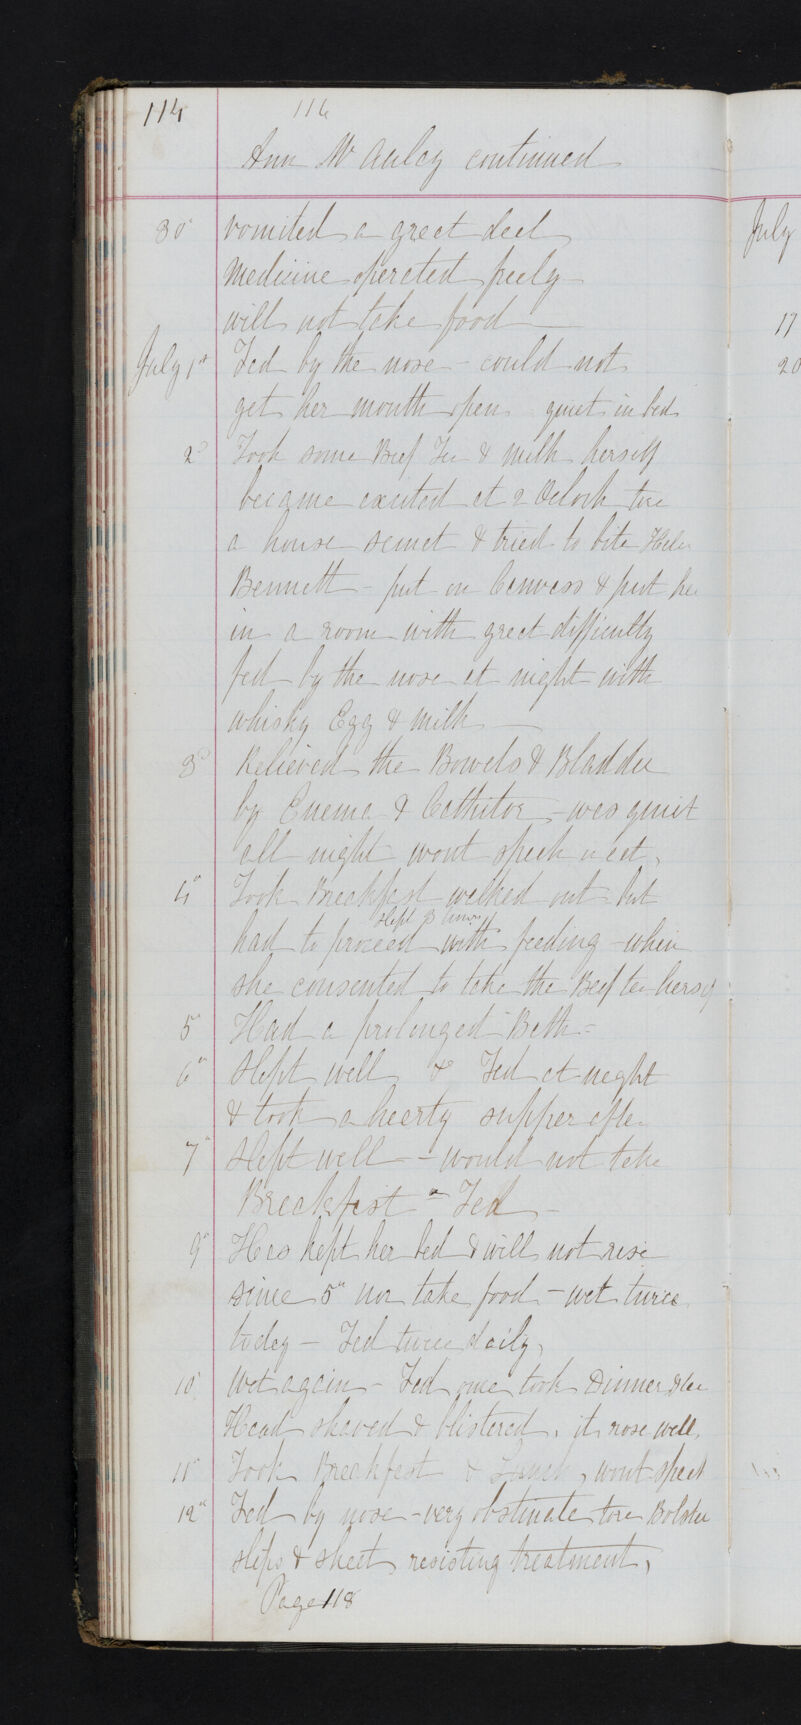 114
116
Ann McAuley continued
30" vomited a great deal
medicine operated freely
will not take food
July 1st Fed by the nose - could not
get her mouth open quiet in bed
2d Took some Beef Tea & milk herself
became excited at 2 Oclock tore
a house semet & tried to bite Helen
Bennett - put on Canvass & put her
in a room with great difficulty
fed by the nose at night with
whisky Egg & milk
3d Relieved the Bowels & Bladder
by Enema & Cathitor - was quiet
all night wont speak a eat,
4" Took Breakfast walked out but
slept 3 hours
had to proceed with feeding when
she consented to take the Beef tea herself
5" Had a prolonged Bath -
6" Slept well & Fed at night
& took a hearty supper after
7" Slept well - would not take
Breakfast - Fed -
9" Has kept her bed & will not rise
since 5" nor take food - wet twice
today - Fed twice daily,
10" Wet again - Fed once took Dinner & tea
Head shaved & blistered, it rose well,
11" Took Breakfast & Lunch, wont speak
12" Fed by nose - very obstinate tore Bolster
slips & sheet resisting treatment,
Page 118
July
17
20